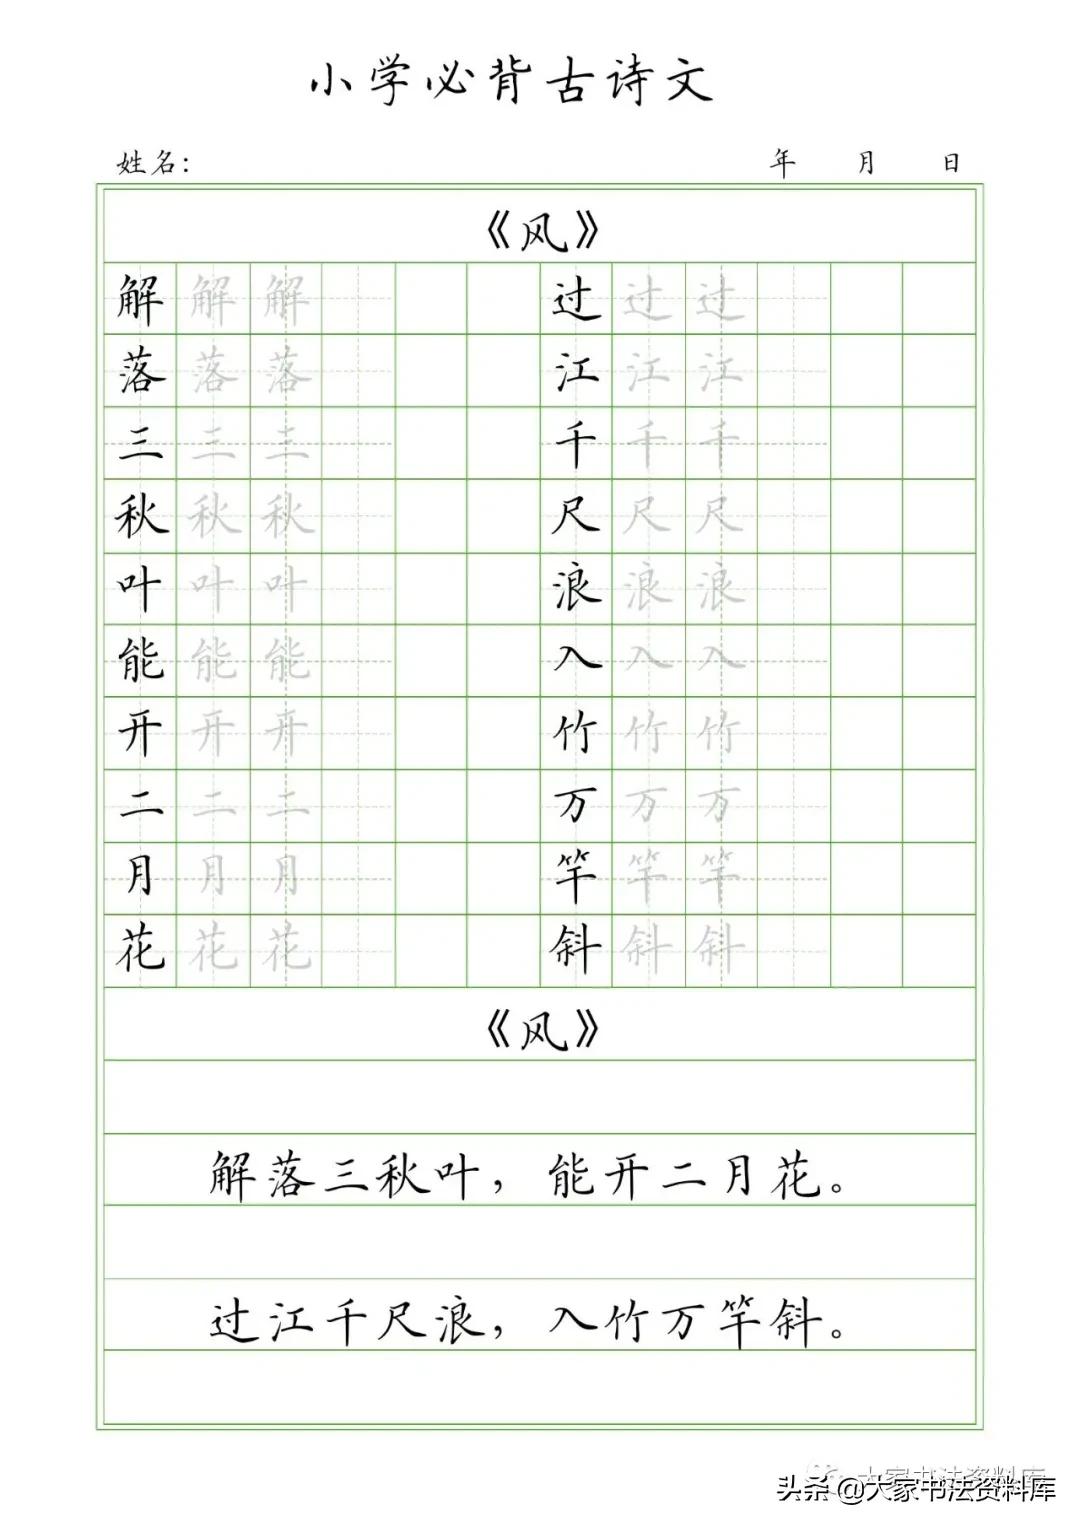 小学必背古诗文
姓名: 年 月 日
《风》
解 解 解 过 过 过
落 落 落 江 江 江
三 三 三 千 千 千
秋 秋 秋 尺 尺 尺
叶 叶 叶 浪 浪 浪
能 能 能 入 入 入
开 开 开 竹 竹 竹
二 二 二 万 万 万
月 月 月 竿 竿 竿
花 花 花 斜 斜 斜
《风》
解落三秋叶，能开二月花。
过江千尺浪，入竹万竿斜。
大家书法资料库
头条 @大家书法资料库